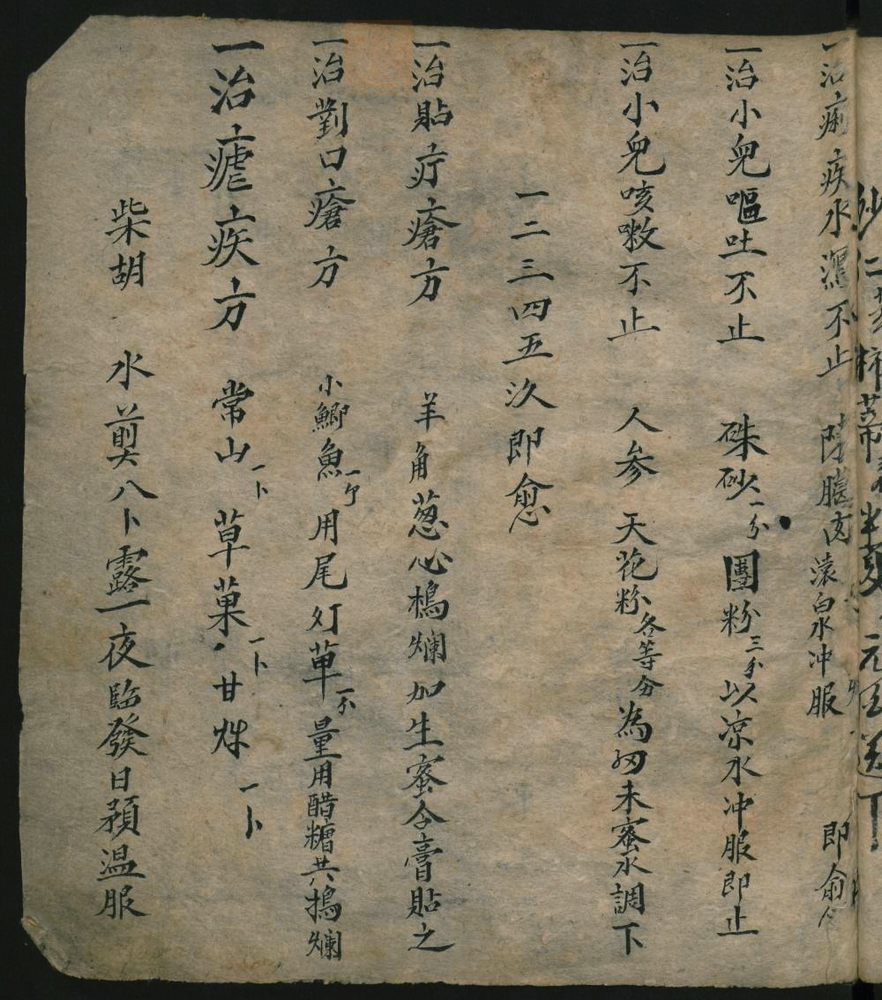 一治痢疾水瀉不止 陳臘肉滾白水冲服 即愈
一治小兒嘔吐不止 硃砂一分團粉三分以凉水冲服即止
一治小兒咳嗽不止 人参天花粉各等分為細末蜜水調下
一二三四五次即愈
一治貼疔瘡方 羊角葱心搗爛加生蜜合膏貼之
一治對口瘡方 小鯽魚一个用尾灯草一分量用醋糟共搗爛
一治瘧疾方 常山一卜草菓一卜甘草一卜
柴胡 水煎八卜露一夜臨發日預温服